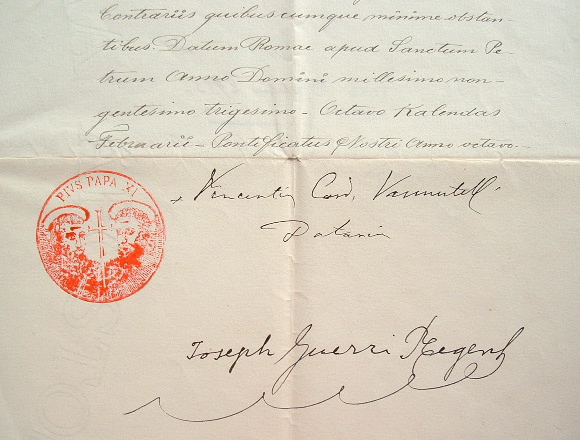 Contrariis quibuscumque minime obstan-
tibus. Datum Romae apud Sanctum Pe-
trum Anno Domini millesimo non-
gentesimo trigesimo – Octavo Kalendas
Februarii – Pontificatus Nostri Anno octavo.–
PIVS PAPA XI
+ Vincentius Card. Vannutelli
Datarius
Joseph Guerri Regens